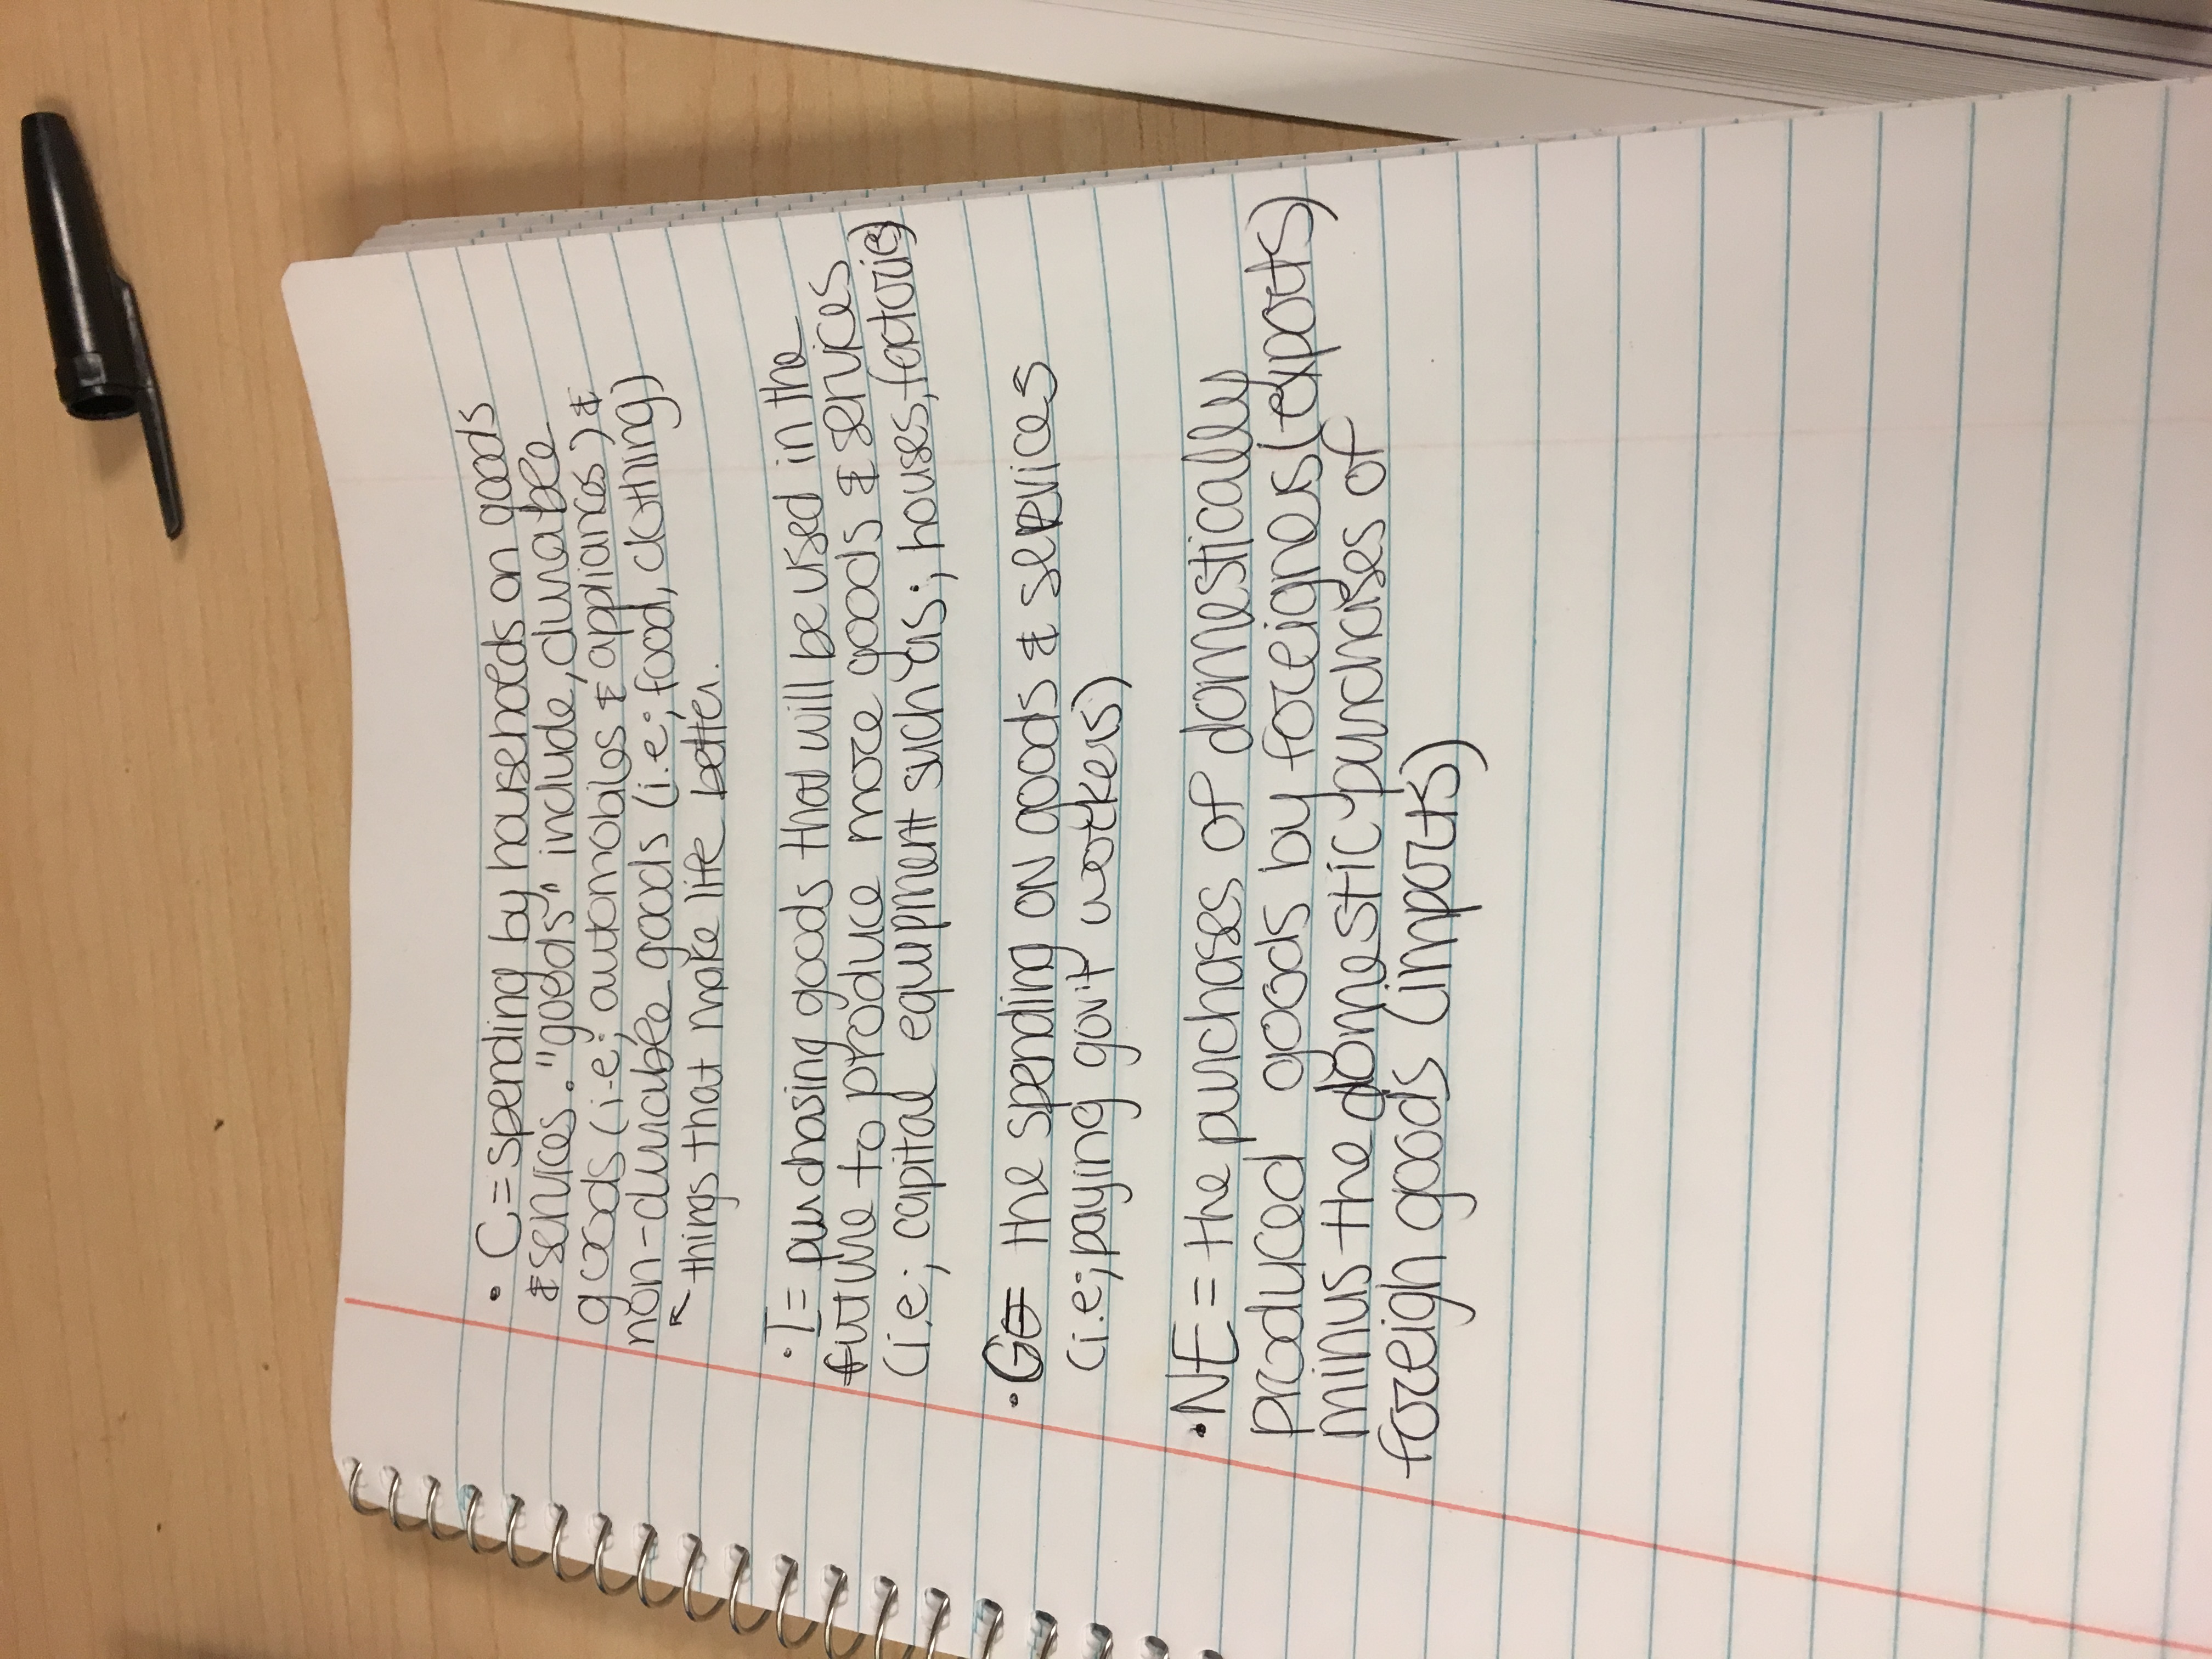 • C = spending by households on goods
& services. "goods" include, durable
goods (i.e: automobiles & appliances) &
non-durable goods (i.e; food, clothing)
↖ things that make life better.
• I = purchasing goods that will be used in the
future to produce more goods & services
(i.e; capital equipment such as; houses, factories)
• G = the spending on goods & services
(i.e; paying gov't workers)
• NE = the purchases of domestically
produced goods by foreigners (exports)
minus the domestic purchases of
foreign goods (imports)